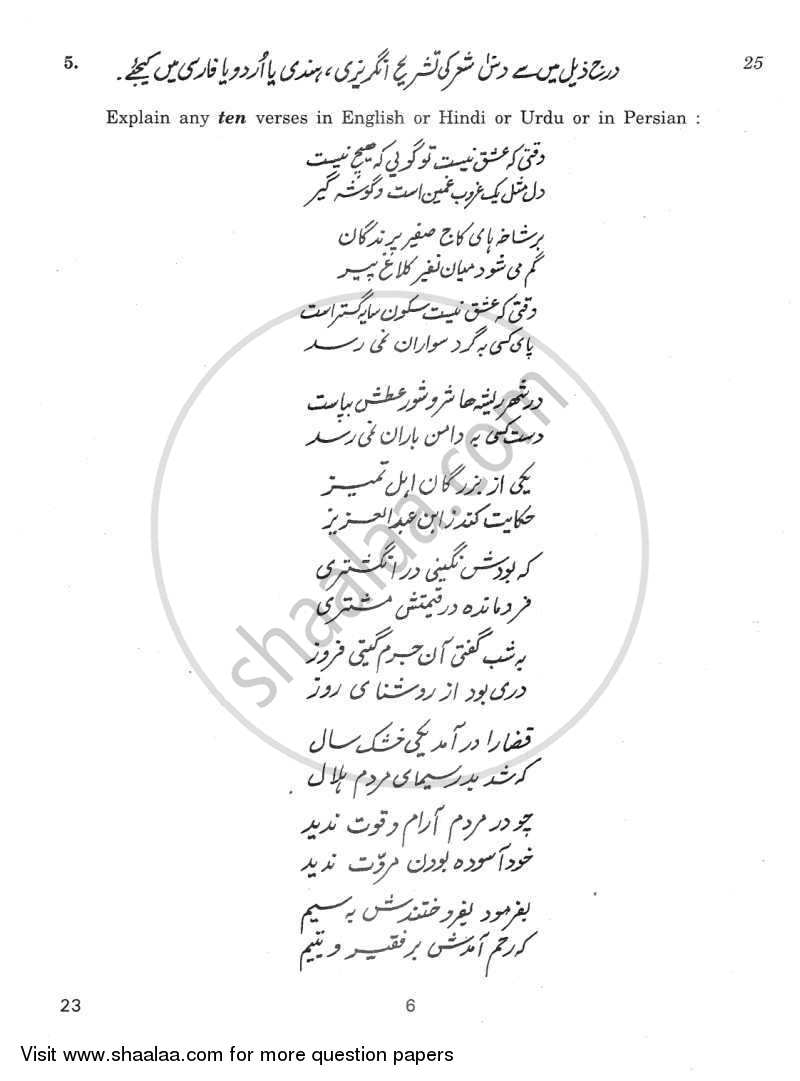 5. درج ذیل میں سے دس شعر کی تشریح انگریزی، ہندی یا اُردو یا فارسی میں کیجئے۔ 25
Explain any ten verses in English or Hindi or Urdu or in Persian :
وقتی کہ عشق نیست تو گویی کہ صبح نیست
دل مثل یک غروب غمین است و گوشہ گیر
بر شاخہ ہای کاج صفیر پرندگان
گم می شود میان نفیر کلاغ پیر
وقتی کہ عشق نیست سکون سایہ گستر است
پای کسی بہ گرد سواران نمی رسد
در شہر ریشہ ها شر و شور عطش بپاست
دست کسی بہ دامن باران نمی رسد
یکی از بزرگان اہل تمیز
حکایت کند ز ابن عبدالعزیز
کہ بودش نگینی در انگشتری
فرو ماندہ در قیمتش مشتری
بہ شب گفتی آن جرم گیتی فروز
دری بود از روشنای روز
قضا را در آمد یکی خشک سال
کہ شد بدر سیمای مردم ہلال
چو در مردم آرام و قوت ندید
خود آسودہ بودن مروّت ندید
بفرمود بفروختندش بہ سیم
کہ رحم آمدش بر فقیر و یتیم
shaalaa.com
23 6
Visit www.shaalaa.com for more question papers